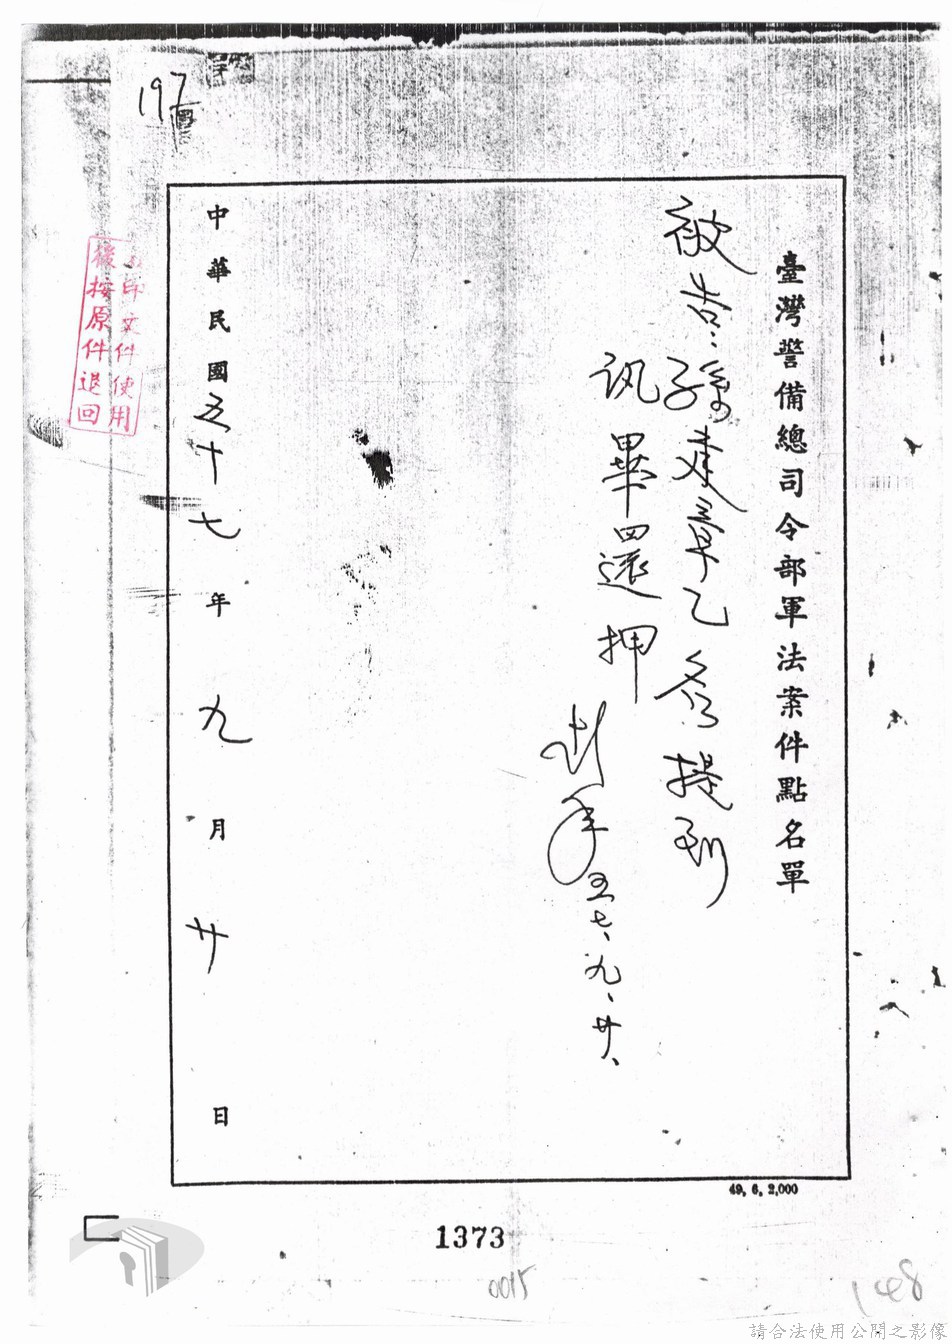 197
臺灣警備總司令部軍法案件點名單
被告：孫建章乙名提到
訊畢還押
五七、九、廿、
中華民國五十七年九月廿日
印文件使用
後按原件退回
49, 6, 2,000
1373
0015
148
請合法使用公開之影像